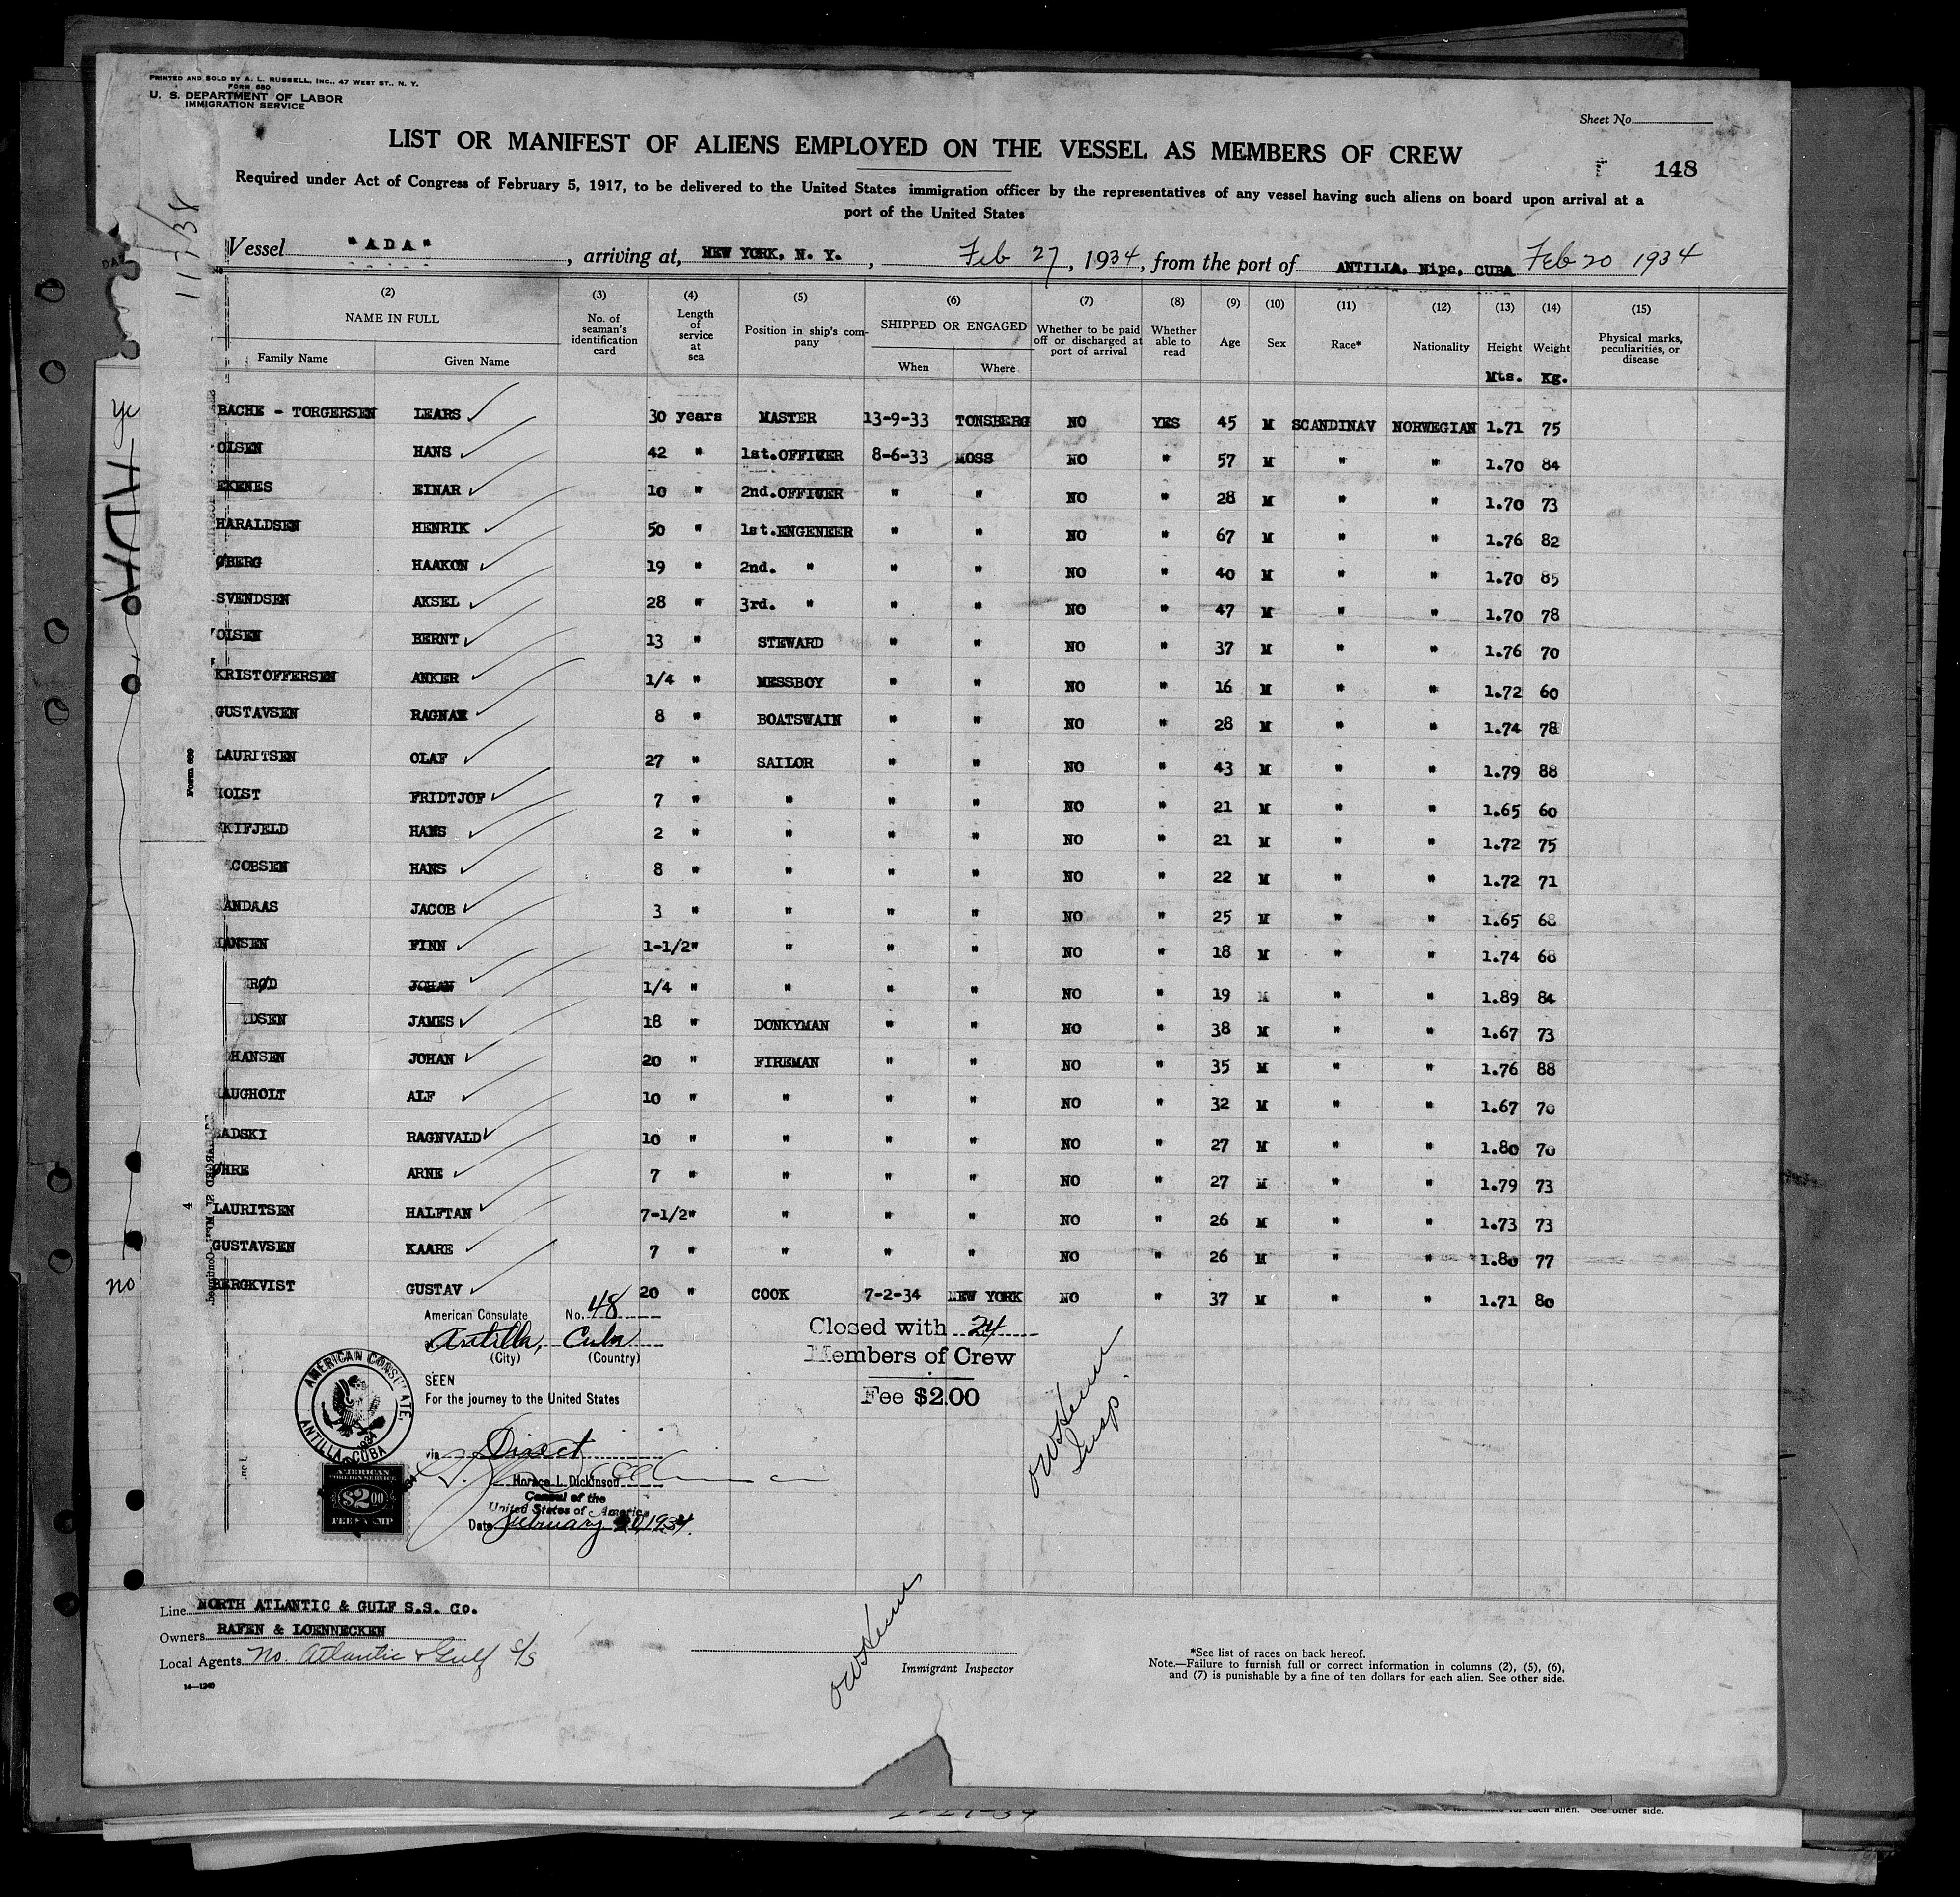 PRINTED AND SOLD BY A. L. RUSSELL, INC., 47 WEST ST., N. Y.
FORM 680
U. S. DEPARTMENT OF LABOR
IMMIGRATION SERVICE
Sheet No.
LIST OR MANIFEST OF ALIENS EMPLOYED ON THE VESSEL AS MEMBERS OF CREW
148
Required under Act of Congress of February 5, 1917, to be delivered to the United States immigration officer by the representatives of any vessel having such aliens on board upon arrival at a
port of the United States
Vessel "ADA", arriving at, NEW YORK, N. Y., Feb 27, 1934, from the port of ANTILIA, Nipe, CUBA Feb 20 1934
(2) (3) (4) (5) (6) (7) (8) (9) (10) (11) (12) (13) (14) (15)
NAME IN FULL No. of seaman's identification card Length of service at sea Position in ship's company SHIPPED OR ENGAGED Whether to be paid off or discharged at port of arrival Whether able to read Age Sex Race* Nationality Height Weight Physical marks, peculiarities, or disease
Family Name Given Name When Where Mts. Kg.
BACHE - TORGERSEN LEARS 30 years MASTER 13-9-33 TONSBERG NO YES 45 M SCANDINAV NORWEGIAN 1.71 75
OLSEN HANS 42 " 1st.OFFICER 8-6-33 MOSS NO " 57 M " " 1.70 84
EKENES EINAR 10 " 2nd.OFFICER " " NO " 28 M " " 1.70 73
HARALDSEN HENRIK 50 " 1st.ENGENEER " " NO " 67 M " " 1.76 82
ØBERG HAAKON 19 " 2nd. " " " NO " 40 M " " 1.70 85
SVENDSEN AKSEL 28 " 3rd. " " " NO " 47 M " " 1.70 78
OLSEN BERNT 13 " STEWARD " " NO " 37 M " " 1.76 70
KRISTOFFERSEN ANKER 1/4 " MESSBOY " " NO " 16 M " " 1.72 60
GUSTAVSEN RAGNAR 8 " BOATSWAIN " " NO " 28 M " " 1.74 78
LAURITSEN OLAF 27 " SAILOR " " NO " 43 M " " 1.79 88
OIST FRIDTJOF 7 " " " " NO " 21 M " " 1.65 60
KIFJELD HANS 2 " " " " NO " 21 M " " 1.72 75
COBSEN HANS 8 " " " " NO " 22 M " " 1.72 71
ANDAAS JACOB 3 " " " " NO " 25 M " " 1.65 68
HANSEN FINN 1-1/2" " " " NO " 18 M " " 1.74 68
RØD JOHAN 1/4 " " " " NO " 19 M " " 1.89 84
DSEN JAMES 18 " DONKYMAN " " NO " 38 M " " 1.67 73
HANSEN JOHAN 20 " FIREMAN " " NO " 35 M " " 1.76 88
AUGHOLT ALF 10 " " " " NO " 32 M " " 1.67 70
BADSKI RAGNVALD 10 " " " " NO " 27 M " " 1.80 70
ØHRE ARNE 7 " " " " NO " 27 M " " 1.79 73
LAURITSEN HALFTAN 7-1/2" " " " NO " 26 M " " 1.73 73
GUSTAVSEN KAARE 7 " " " " NO " 26 M " " 1.80 77
BERGKVIST GUSTAV 20 " COOK 7-2-34 NEW YORK NO " 37 M " " 1.71 80
American Consulate No. 48
Antilla, Cuba
(City) (Country)
SEEN
For the journey to the United States
via Direct
Horace L. Dickinson
Consul of the
United States of America
Date February 20, 1934.
AMERICAN CONSULATE
ANTILLA, CUBA
AMERICAN
FOREIGN SERVICE
$2.00
FEE STAMP
Closed with 24
Members of Crew
Fee $2.00
Insp.
ADA
no
Form 680
Line NORTH ATLANTIC & GULF S.S. Co.
Owners RAFEN & LOENNECKEN
Local Agents No. Atlantic & Gulf S/S
14—1240
Immigrant Inspector
*See list of races on back hereof.
Note.—Failure to furnish full or correct information in columns (2), (5), (6),
and (7) is punishable by a fine of ten dollars for each alien. See other side.
2-27-34
each alien. See other side.